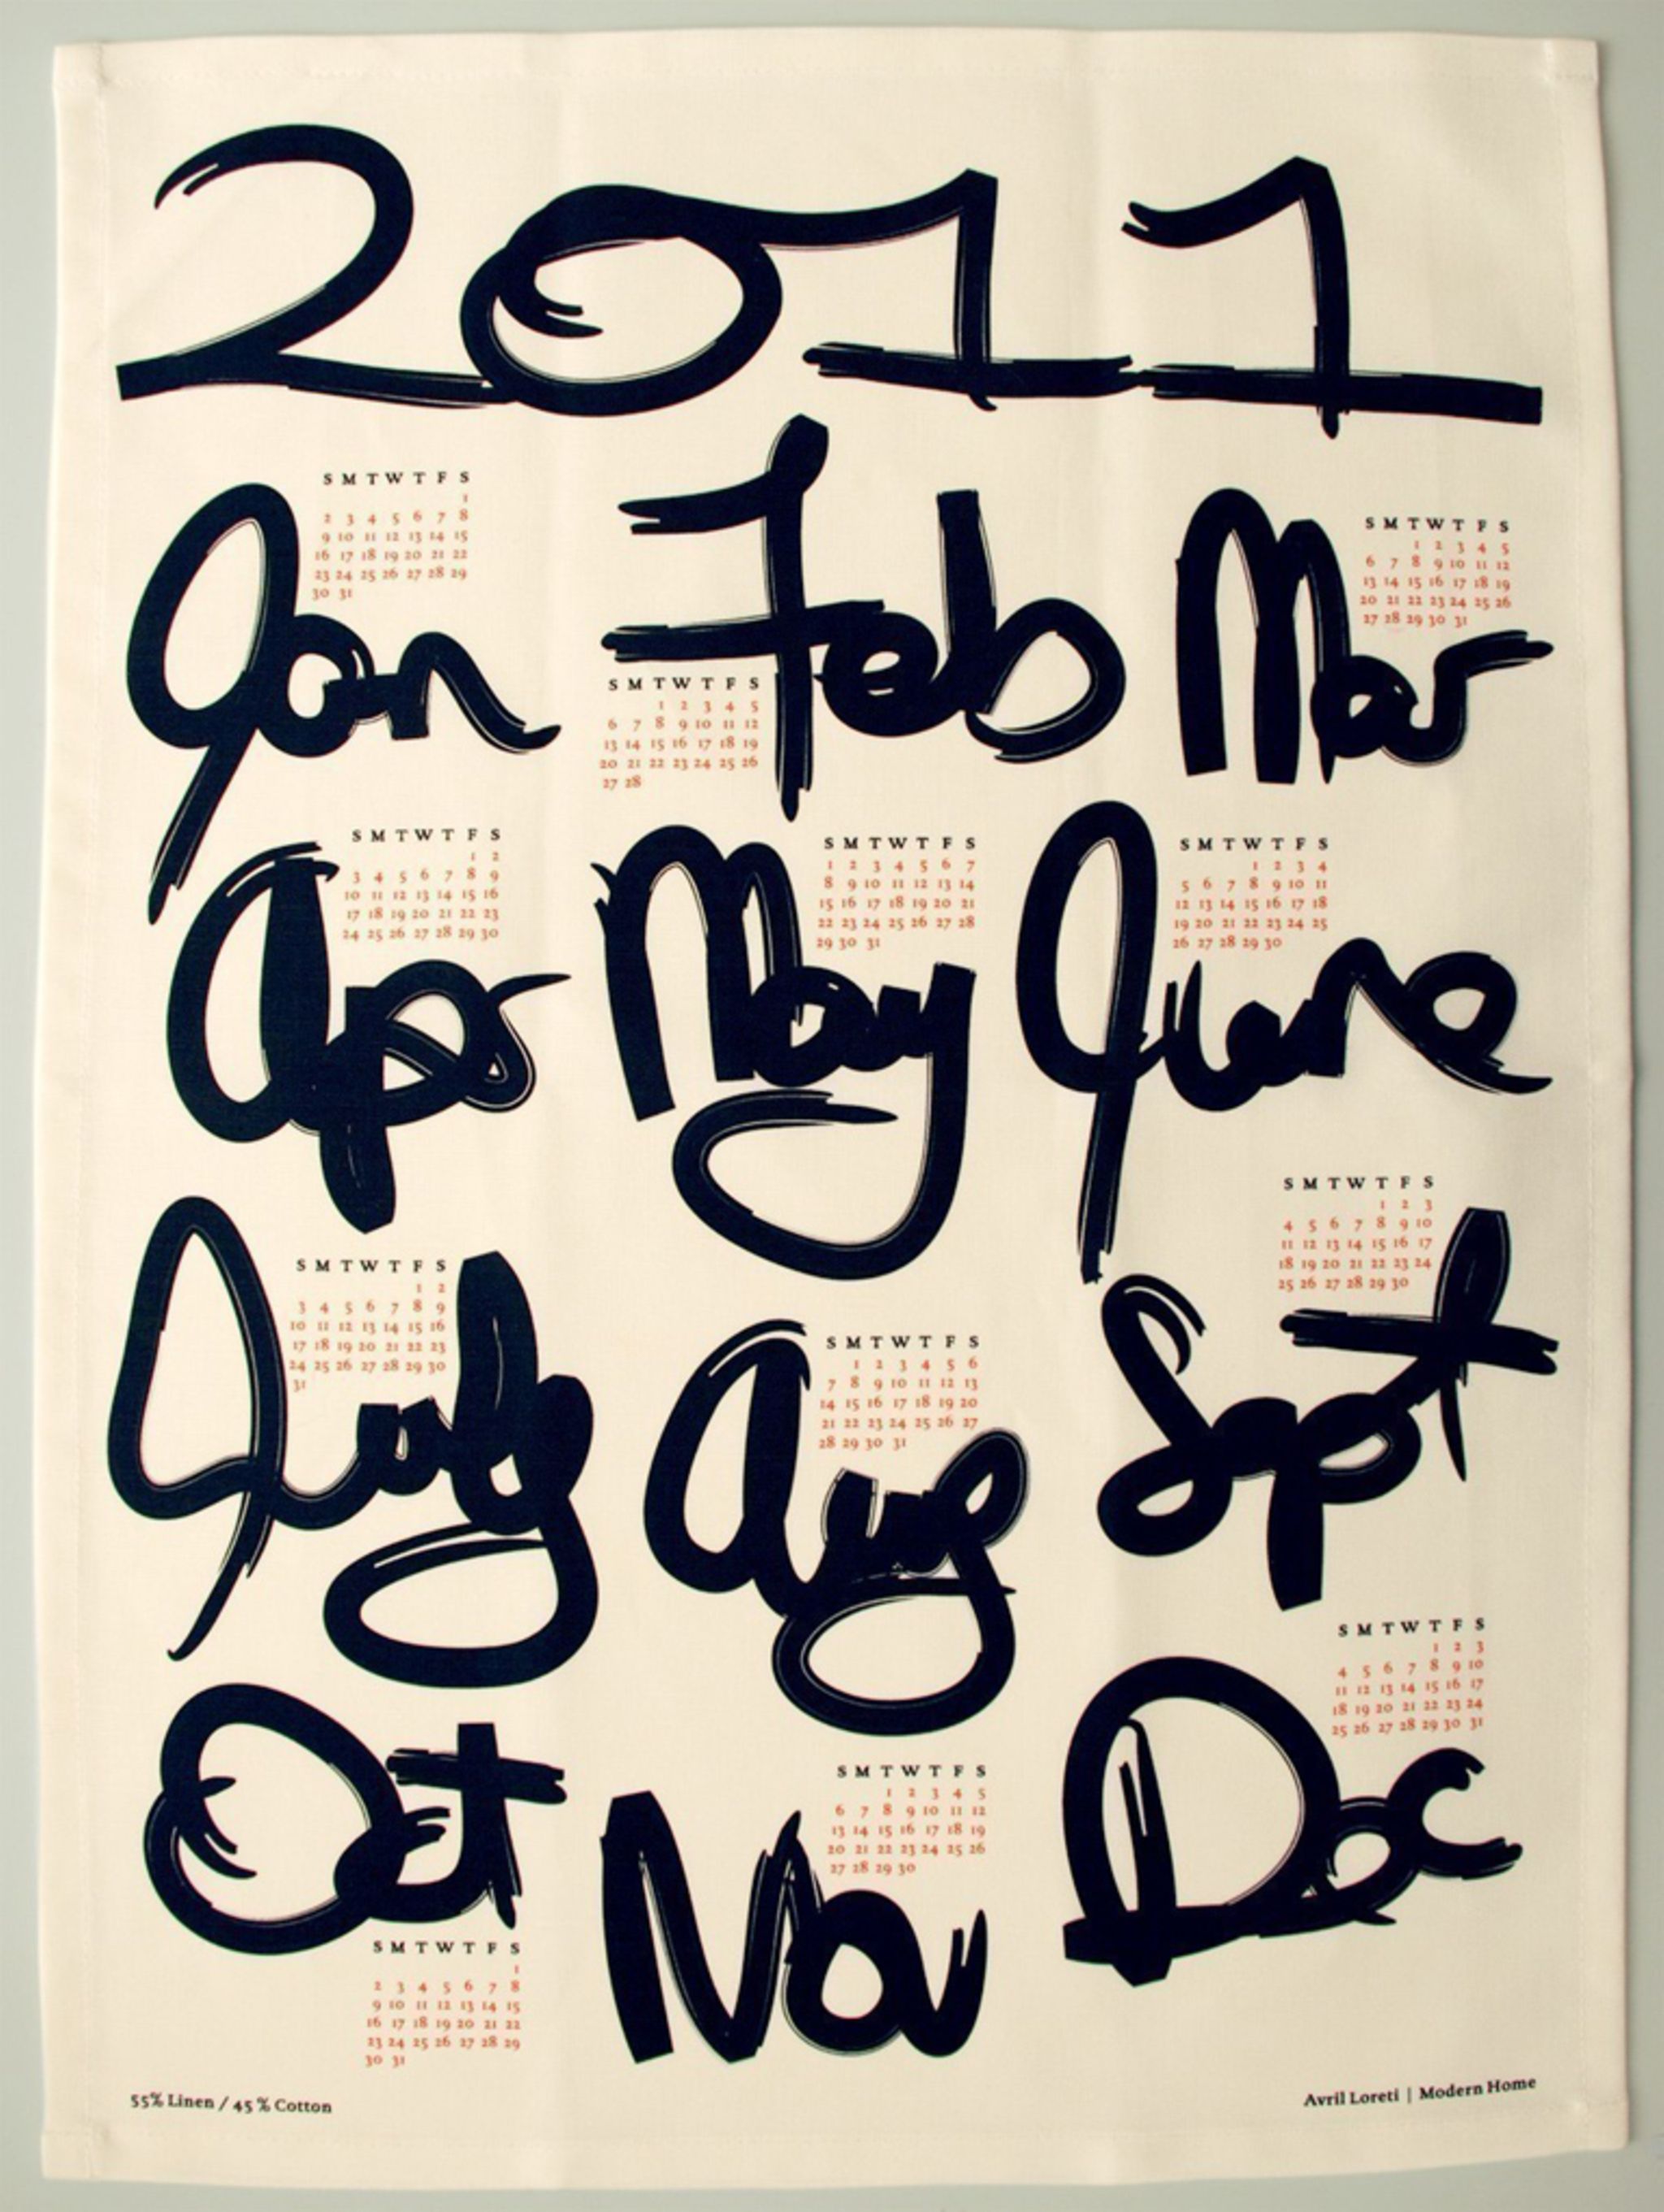 2011
Jan
S M T W T F S
1
2 3 4 5 6 7 8
9 10 11 12 13 14 15
16 17 18 19 20 21 22
23 24 25 26 27 28 29
30 31
Feb
S M T W T F S
1 2 3 4 5
6 7 8 9 10 11 12
13 14 15 16 17 18 19
20 21 22 23 24 25 26
27 28
Mar
S M T W T F S
1 2 3 4 5
6 7 8 9 10 11 12
13 14 15 16 17 18 19
20 21 22 23 24 25 26
27 28 29 30 31
Apr
S M T W T F S
1 2
3 4 5 6 7 8 9
10 11 12 13 14 15 16
17 18 19 20 21 22 23
24 25 26 27 28 29 30
May
S M T W T F S
1 2 3 4 5 6 7
8 9 10 11 12 13 14
15 16 17 18 19 20 21
22 23 24 25 26 27 28
29 30 31
June
S M T W T F S
1 2 3 4
5 6 7 8 9 10 11
12 13 14 15 16 17 18
19 20 21 22 23 24 25
26 27 28 29 30
July
S M T W T F S
1 2
3 4 5 6 7 8 9
10 11 12 13 14 15 16
17 18 19 20 21 22 23
24 25 26 27 28 29 30
31
Aug
S M T W T F S
1 2 3 4 5 6
7 8 9 10 11 12 13
14 15 16 17 18 19 20
21 22 23 24 25 26 27
28 29 30 31
Sept
S M T W T F S
1 2 3
4 5 6 7 8 9 10
11 12 13 14 15 16 17
18 19 20 21 22 23 24
25 26 27 28 29 30
Oct
S M T W T F S
1
2 3 4 5 6 7 8
9 10 11 12 13 14 15
16 17 18 19 20 21 22
23 24 25 26 27 28 29
30 31
Nov
S M T W T F S
1 2 3 4 5
6 7 8 9 10 11 12
13 14 15 16 17 18 19
20 21 22 23 24 25 26
27 28 29 30
Dec
S M T W T F S
1 2 3
4 5 6 7 8 9 10
11 12 13 14 15 16 17
18 19 20 21 22 23 24
25 26 27 28 29 30 31
55% Linen / 45% Cotton
Avril Loreti | Modern Home